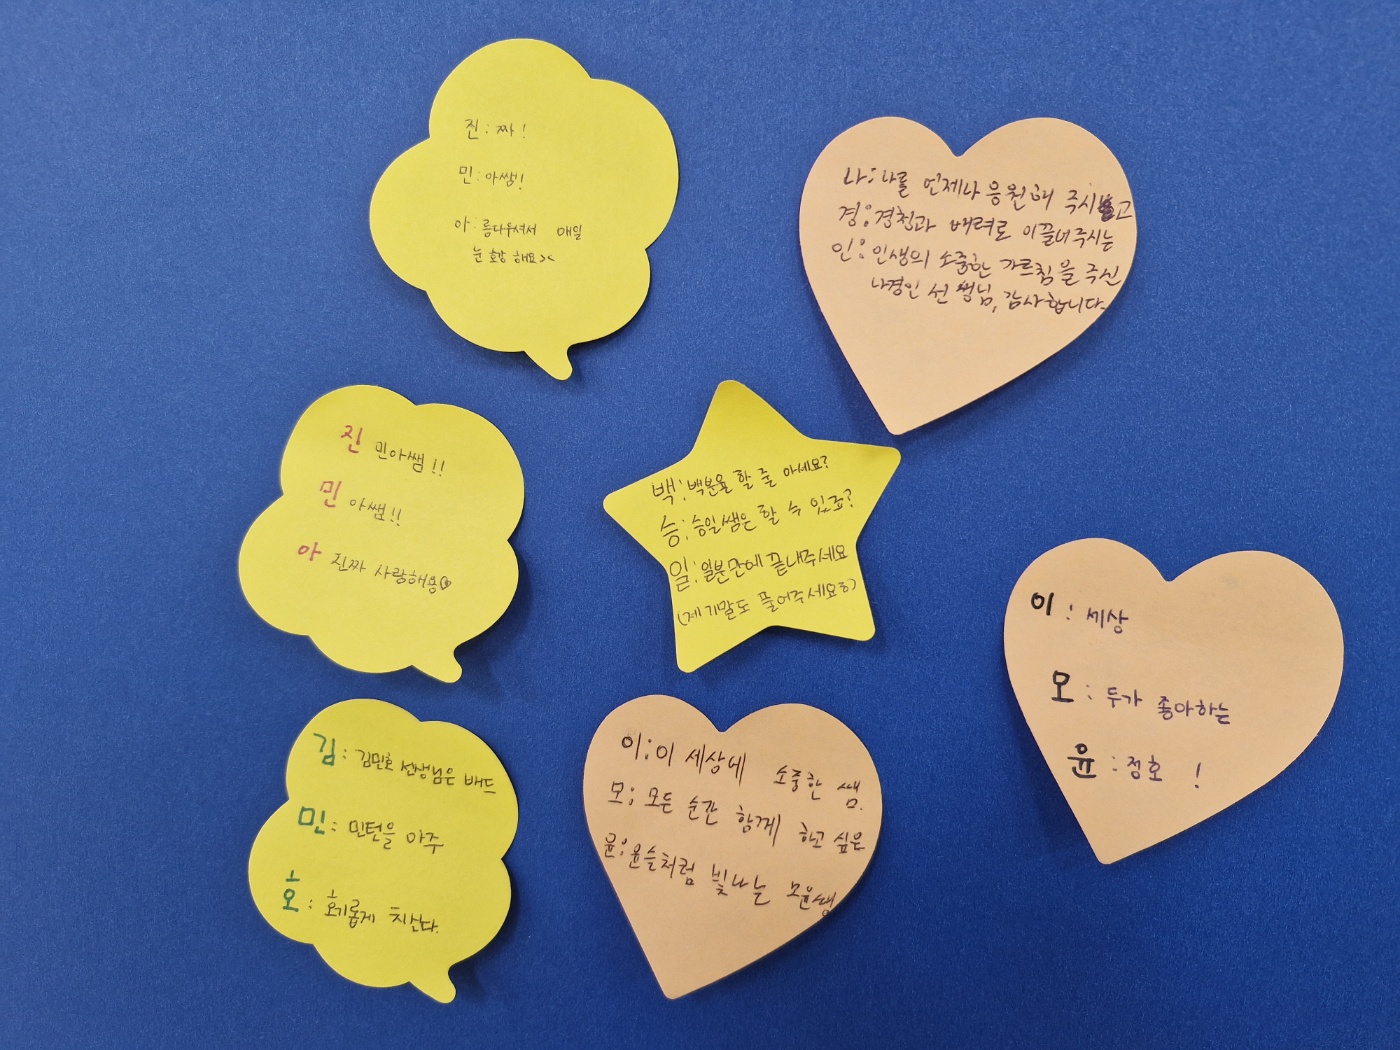 진 : 짜 !
민 : 아쌤!
아 : 름다우셔서 매일
눈 호강 해요><
나 : 나를 언제나 응원해 주시고
경 : 경청과 배려로 이끌어주시는
인 : 인생의 소중한 가르침을 주신
나경인 선생님, 감사합니다.
진 민아쌤!!
민 아쌤!!
아 진짜 사랑해용♡
백 : 백분율 할 줄 아세요?
승 : 승일쌤은 할 수 있죠?
일 : 일분만에 끝내주세요
(제 기말도 풀어주세요ㅎ)
이 : 세상
모 : 두가 좋아하는
윤 : 정호 !
김 : 김민호 선생님은 배드
민 : 민턴을 아주
호 : 호기롭게 치신다.
이 : 이 세상에 소중한 쌤.
모 ; 모든 순간 함께 하고 싶은
윤 : 윤슬처럼 빛나는 모윤쌤